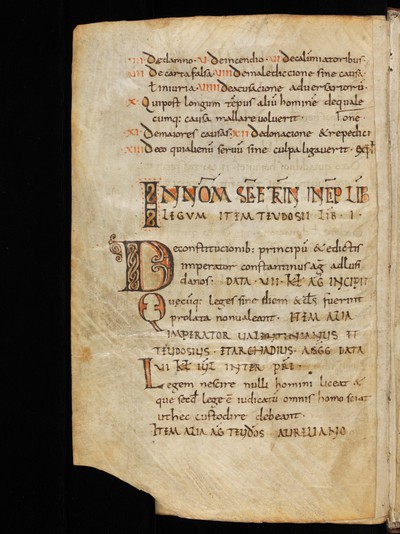 ·III· De damno· VI· De incendio· VII De calumiatoribus·
VIII De carta falsa· VIIII De maledictione sine causa
ł iniuria· VIIII De acusacione adversariorū
X· Qui post longum tēpus aliū homine de quale
cumq: causa mallare voluerit· lone
XI· De maiores causas· XII De donacione & repedici
XIII De eo qui alienū servū sine culpa ligaverit· expł
IN NOM̄ SC̄E TRIN̄ INC̄P LIB
LEGUM ITEM TEUDOSII LIB · I ·
De constitucionib: principū & edictis
imperator constantinus ag̅ ad lusi
danos· DATA · VII · kł AG INCIPIT
Quecūq: leges sine diem & cōs fuerint
prolata non ualeant· ITEM ALIA
IMPERATOR VALENTINIANUS ET
TEUDOSIUS· ET ARGHADIUS· AGGG DATA
VI kł IUL INTER PRI·
Legem nescire nulli homini liceat &
que sect lege ē iudicatū omnis homo sciat
ut hec custodire debeant·
ITEM ALIA AG̅ TEUDOS AURELIANO